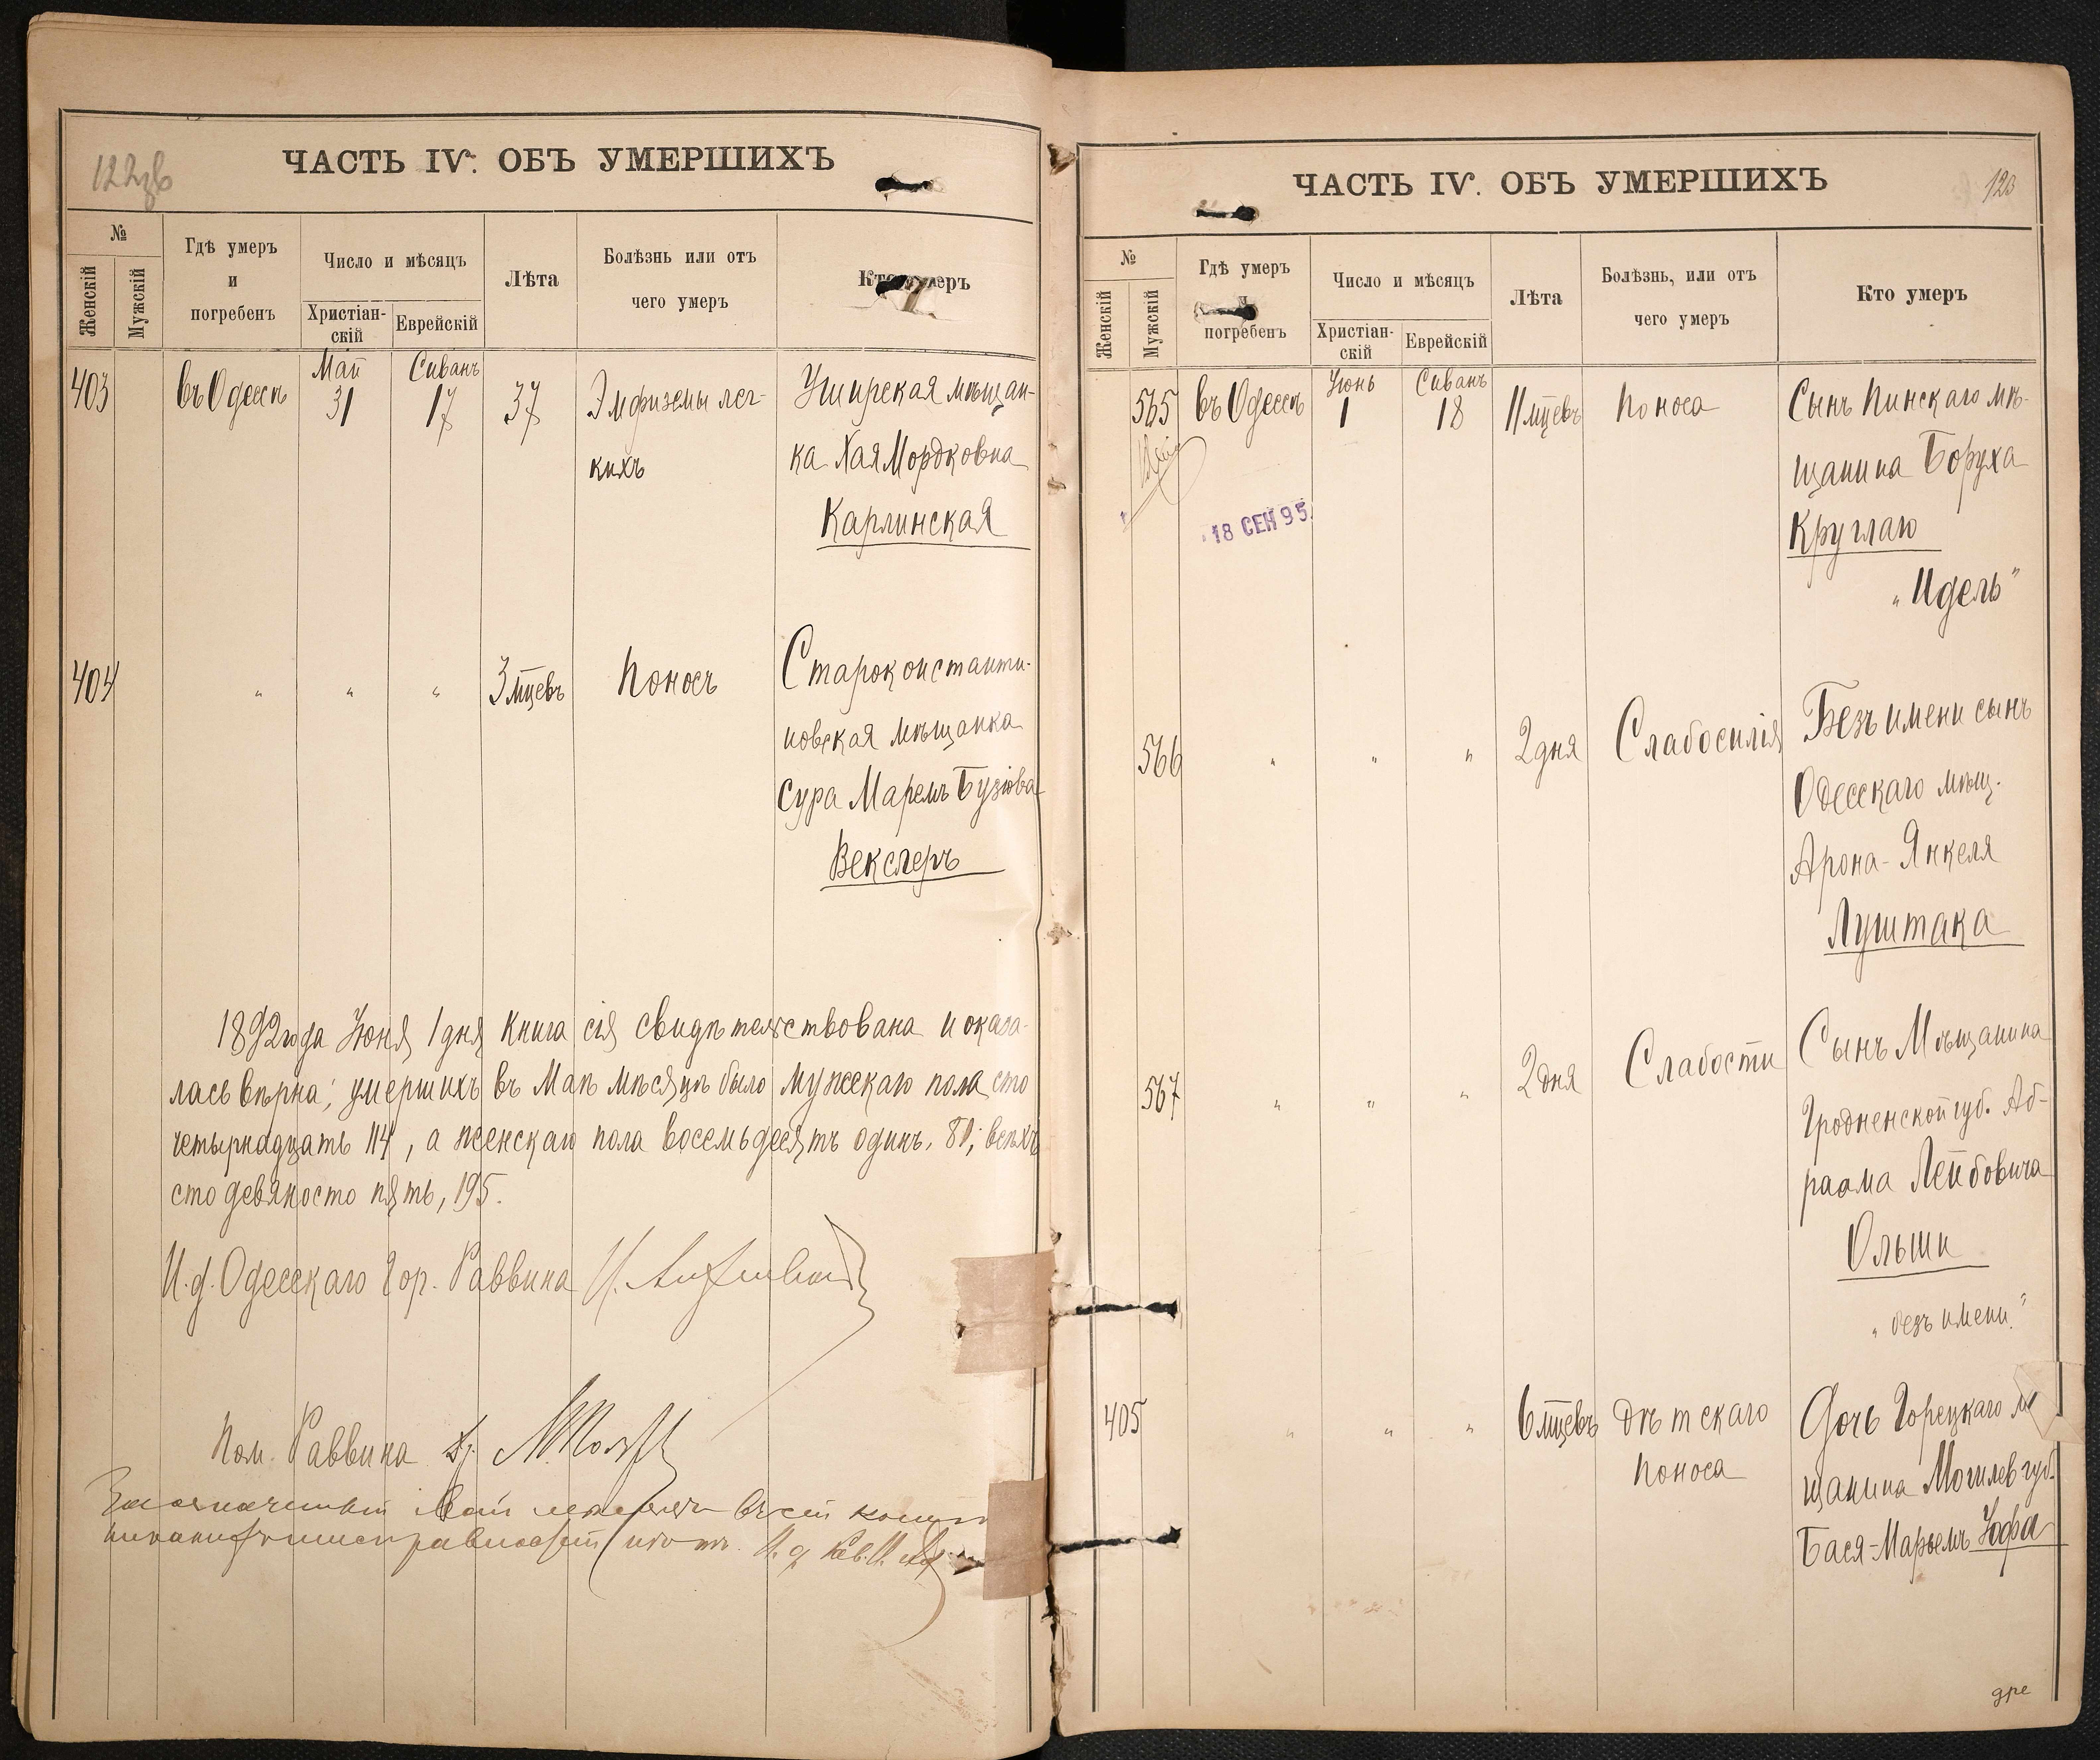 ЧАСТЬ IV. ОБЪ УМЕРШИХЪ
№
Женскій
Мужскій
Гдѣ умеръ
и
погребенъ
Число и мѣсяцъ
Христіан-
скій
Еврейскій
Лѣта
Болѣзнь или отъ
чего умеръ
Кто умеръ
403
въ Одессѣ
Май
31
Сиванъ
17
37
Эмфиземы лег-
кихъ
Ушицская мѣщан-
ка Хая Мордковна
Карлинская
404
"
"
"
3 мцевъ
Поносъ
Староконстанти-
новская мѣщанка
Сура Маремъ Бузіова
Векслеръ
1892 года Іюня 1 дня книга сія свидѣтельствована и оказа-
лась вѣрна; умершихъ въ Маѣ мѣсяцѣ было мужскаго пола сто
четырнадцать 114, а женскаго пола восемьдесятъ одинъ, 81, всѣхъ
сто девяносто пять, 195.
И. д. Одесскаго Гор. Раввина
Пом. Раввина
ЧАСТЬ IV. ОБЪ УМЕРШИХЪ
123
№
Женскій
Мужскій
Гдѣ умеръ
погребенъ
Число и мѣсяцъ
Христіан-
скій
Еврейскій
Лѣта
Болѣзнь, или отъ
чего умеръ
Кто умеръ
565
въ Одессѣ
Іюнь
1
Сиванъ
18
11 мцевъ
Поноса
Сынъ Пинскаго мѣ-
щанина Боруха
Круглаго
„Идель"
18 СЕН 95
566
"
"
"
2 дня
Слабосилія
Безъ имени сынъ
Одесскаго мѣщ.
Арона-Янкеля
Луштака
567
"
"
"
2 дня
Слабости
Сынъ Мѣщанина
Гродненской губ. Аб-
раама Лейбовича
Ольши
„безъ имени"
405
"
"
"
6 мцевъ
Дѣтскаго
поноса
Дочь Горецкаго
щанина Могилев губ.
Бася-Марьемъ Іофа